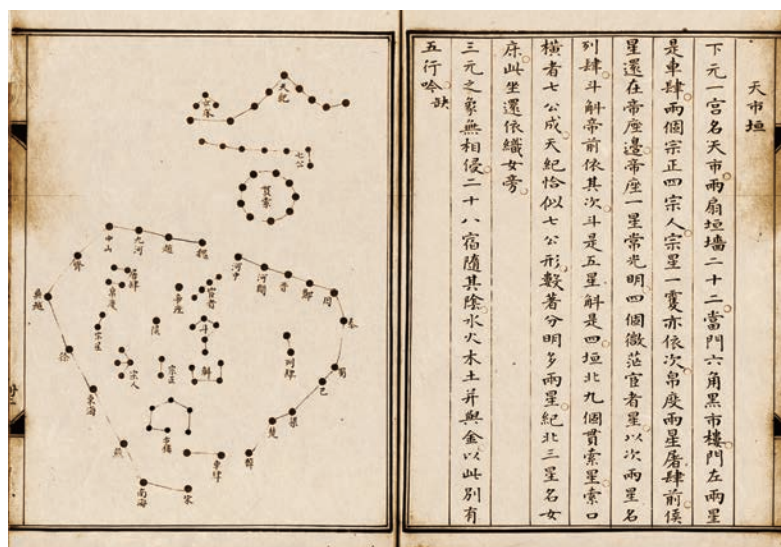 天市垣
下元一宮名天市兩扇垣墻二十二當門六角黑市樓門左兩星
是車肆兩個宗正四宗人宗星一雙亦依次帛度兩星屠肆前侯
星還在帝座邊帝座一星常光明四個微茫宦者星以次兩星名
列肆斗斛帝前依其次斗是五星斛是四垣北九個貫索星索口
橫者七公成天紀恰似七公形數著分明多兩星紀北三星名女
床此坐還依織女旁
三元之象無相侵二十八宿隨其陰水火木土并與金以此別有
五行吟訣
天紀
女床
七公
貫索
魏
趙
九河
中山
齊
吳越
徐
東海
燕
南海
宋
河中
河間
晉
鄭
周
秦
蜀
巴
梁
楚
韓
屠肆
帛度
宗星
宗人
宗正
帝座
宦者
斗
斛
列肆
市樓
車肆